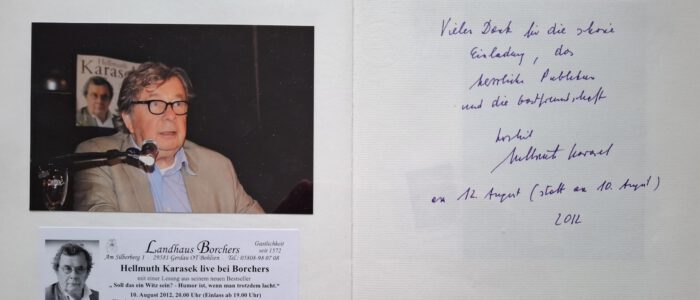 Hellmuth
Karasek
Landhaus Borchers
Gastlichkeit
seit 1572
Am Silberberg 1 - 29581 Gerdau OT Bohlsen Tel.: 05808-98 07 08
Hellmuth Karasek live bei Borchers
mit einer Lesung aus seinem neuen Bestseller
„ Soll das ein Witz sein? - Humor ist, wenn man trotzdem lacht.“
10. August 2012, 20.00 Uhr (Einlass ab 19.00 Uhr)
Vielen Dank für die schöne
Einladung, das
herrliche Publikum
und die Gastfreundschaft
herzlich
Hellmuth Karasek
am 12. August (statt am 10. August)
2012